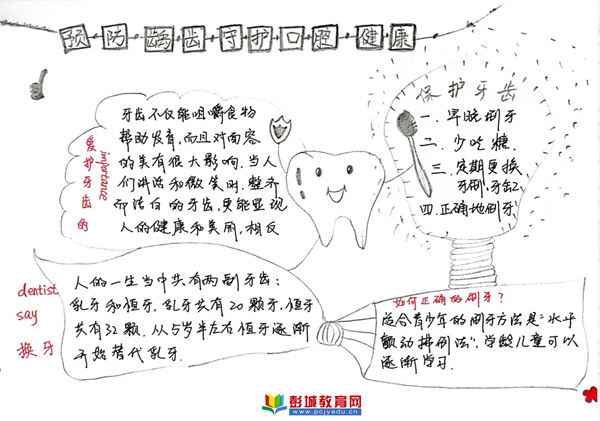 预防龋齿守护口腔健康
爱护牙齿的
importance
牙齿不仅能咀嚼食物
帮助发育,而且对面容
的美有很大影响,当人
们讲话和微笑时,整齐
而洁白的牙齿,更能显现
人的健康和美丽,相反
保护牙齿
一.早晚刷牙
二.少吃糖
三.定期更换
牙刷,牙齿
四.正确地刷牙
dentist
say
换牙
人的一生当中共有两副牙齿:
乳牙和恒牙,乳牙共有20颗牙,恒牙
共有32颗.从6岁半左右恒牙逐渐
开始替代乳牙.
如何正确的刷牙?
适合青少年的刷牙方法是"水平
颤动拂刷法",学龄儿童可以
逐渐学习.
彭城教育网
www.pcjyedu.cn